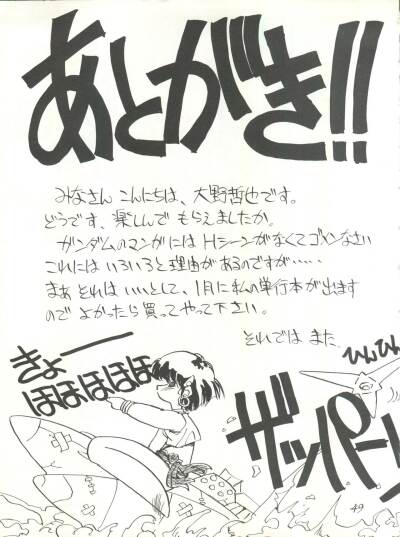 あとがき!!
みなさん こんにちは、大野哲也です。
どうです、楽しんで もらえましたか。
ガンダムのマンガには Hシーンがなくてゴメンなさい
これには いろいろと理由があるのですが‥‥‥
まぁ それは いいとして、1月に私の単行本が出ます
ので よかったら 買ってやって下さい。
それでは また
きょーー
ほほほほほ
ひんひん
ザッパーン
49